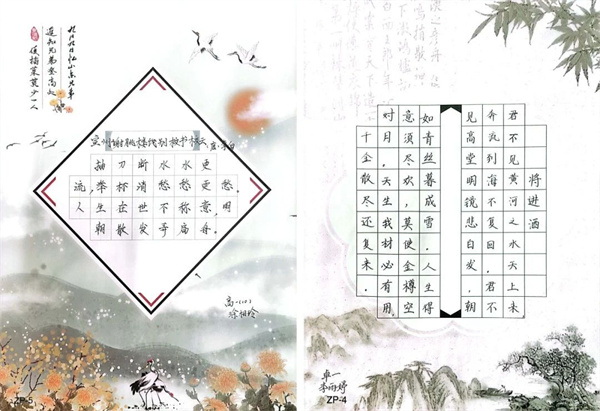 九月九日忆山东兄弟
遥知兄弟登高处
遍插茱萸少一人
宣州谢朓楼饯别校书叔云 唐·李白
抽刀断水水更
流,举杯消愁愁更愁。
人生在世不称意,明
朝散发弄扁舟。
高一
ZP-5
将进酒
君不见黄河之水天上来
奔流到海不复回。君不
见高堂明镜悲白发,朝
如青丝暮成雪。人生得
意须尽欢,莫使金樽空
对月。天生我材必有用,
千金散尽还复来。
李雨婷
ZP-4